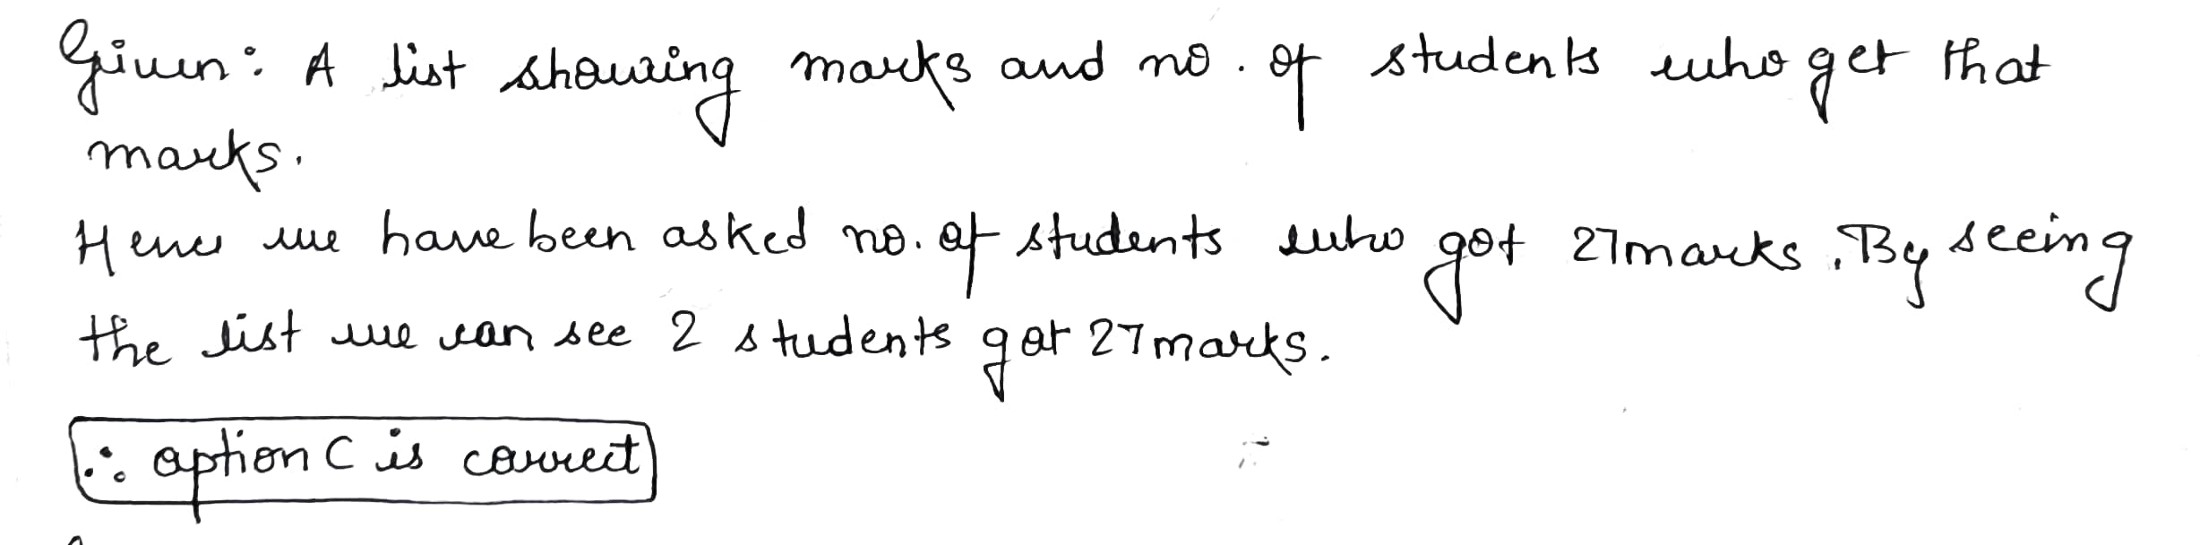 Given: A list showing marks and no. of students who get that
marks.
Hence we have been asked no. of students who got 27marks. By seeing
the list we can see 2 students got 27marks.
∴ option C is correct